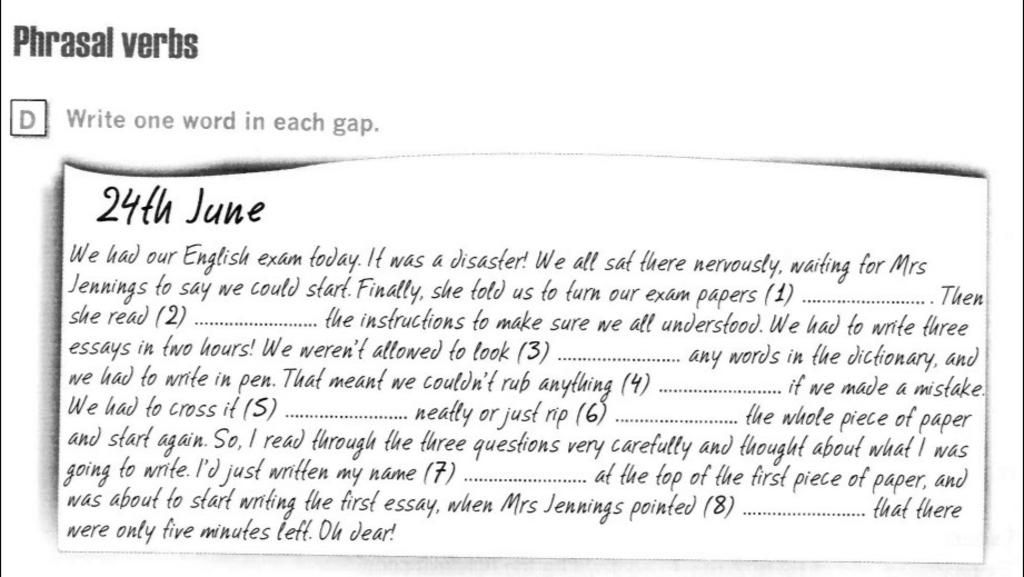 Phrasal verbs
D Write one word in each gap.
24th June
We had our English exam today. It was a disaster! We all sat there nervously, waiting for Mrs
Jennings to say we could start. Finally, she told us to turn our exam papers (1) .......................... . Then
she read (2) .......................... the instructions to make sure we all understood. We had to write three
essays in two hours! We weren't allowed to look (3) .......................... any words in the dictionary, and
we had to write in pen. That meant we couldn't rub anything (4) .......................... if we made a mistake.
We had to cross it (5) .......................... neatly or just rip (6) .......................... the whole piece of paper
and start again. So, I read through the three questions very carefully and thought about what I was
going to write. I'd just written my name (7) .......................... at the top of the first piece of paper, and
was about to start writing the first essay, when Mrs Jennings pointed (8) .......................... that there
were only five minutes left. Oh dear!